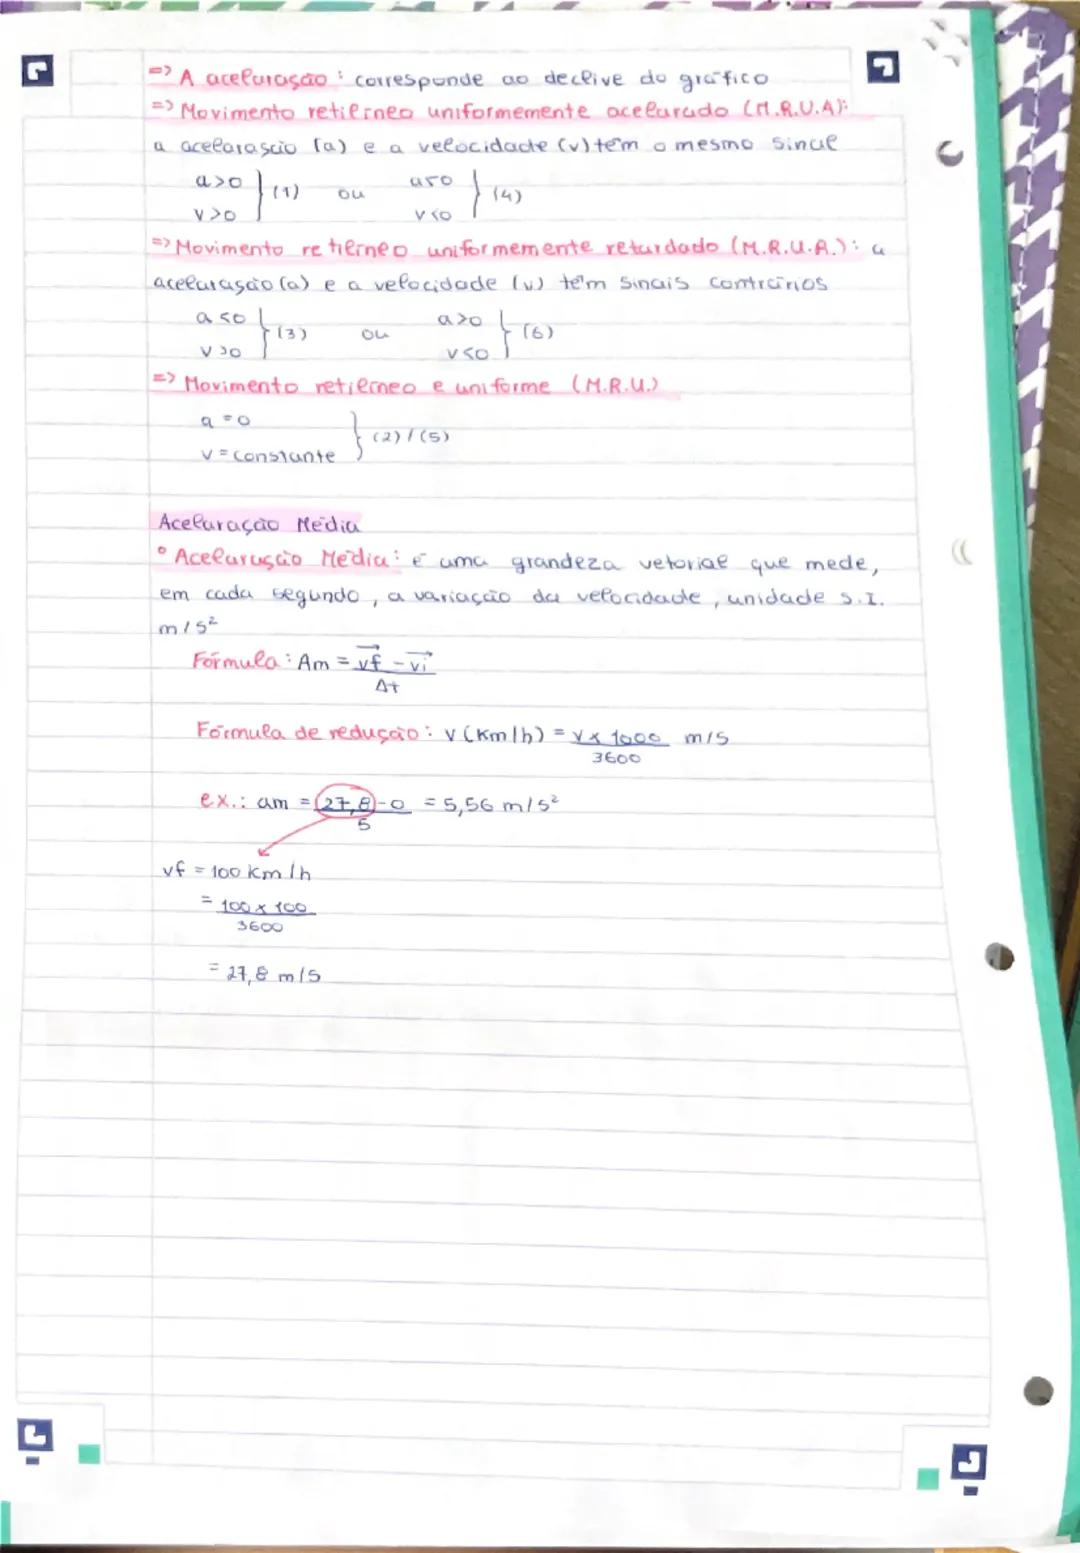 => A aceluração : corresponde ao declive do gráfico
=> Movimento retilíneo uniformemente acelarado (M.R.U.A):
a acelaração (a) e a velocidade (v) têm o mesmo sinal
a>0 } (1) ou a<0 } (4)
v>0 v<0
=> Movimento retilíneo uniformemente retardado (M.R.U.R.): a
acelaração (a) e a velocidade (v) têm sinais contrários
a<0 } (3) ou a>0 } (6)
v>0 v<0
=> Movimento retilíneo e uniforme (M.R.U.)
a=0 } (2)/(5)
v=constante
Acelaração Média
° Acelaração Média: é uma grandeza vetorial que mede,
em cada segundo, a variação da velocidade, unidade S.I.
m/s²
Fórmula: Am = v⃗f - v⃗i
Δt
Fórmula de redução: v (km/h) = v x 1000 m/s
3600
ex.: am = 27,8-0 = 5,56 m/s²
5
vf = 100 km/h
= 100 x 100
3600
= 27,8 m/s